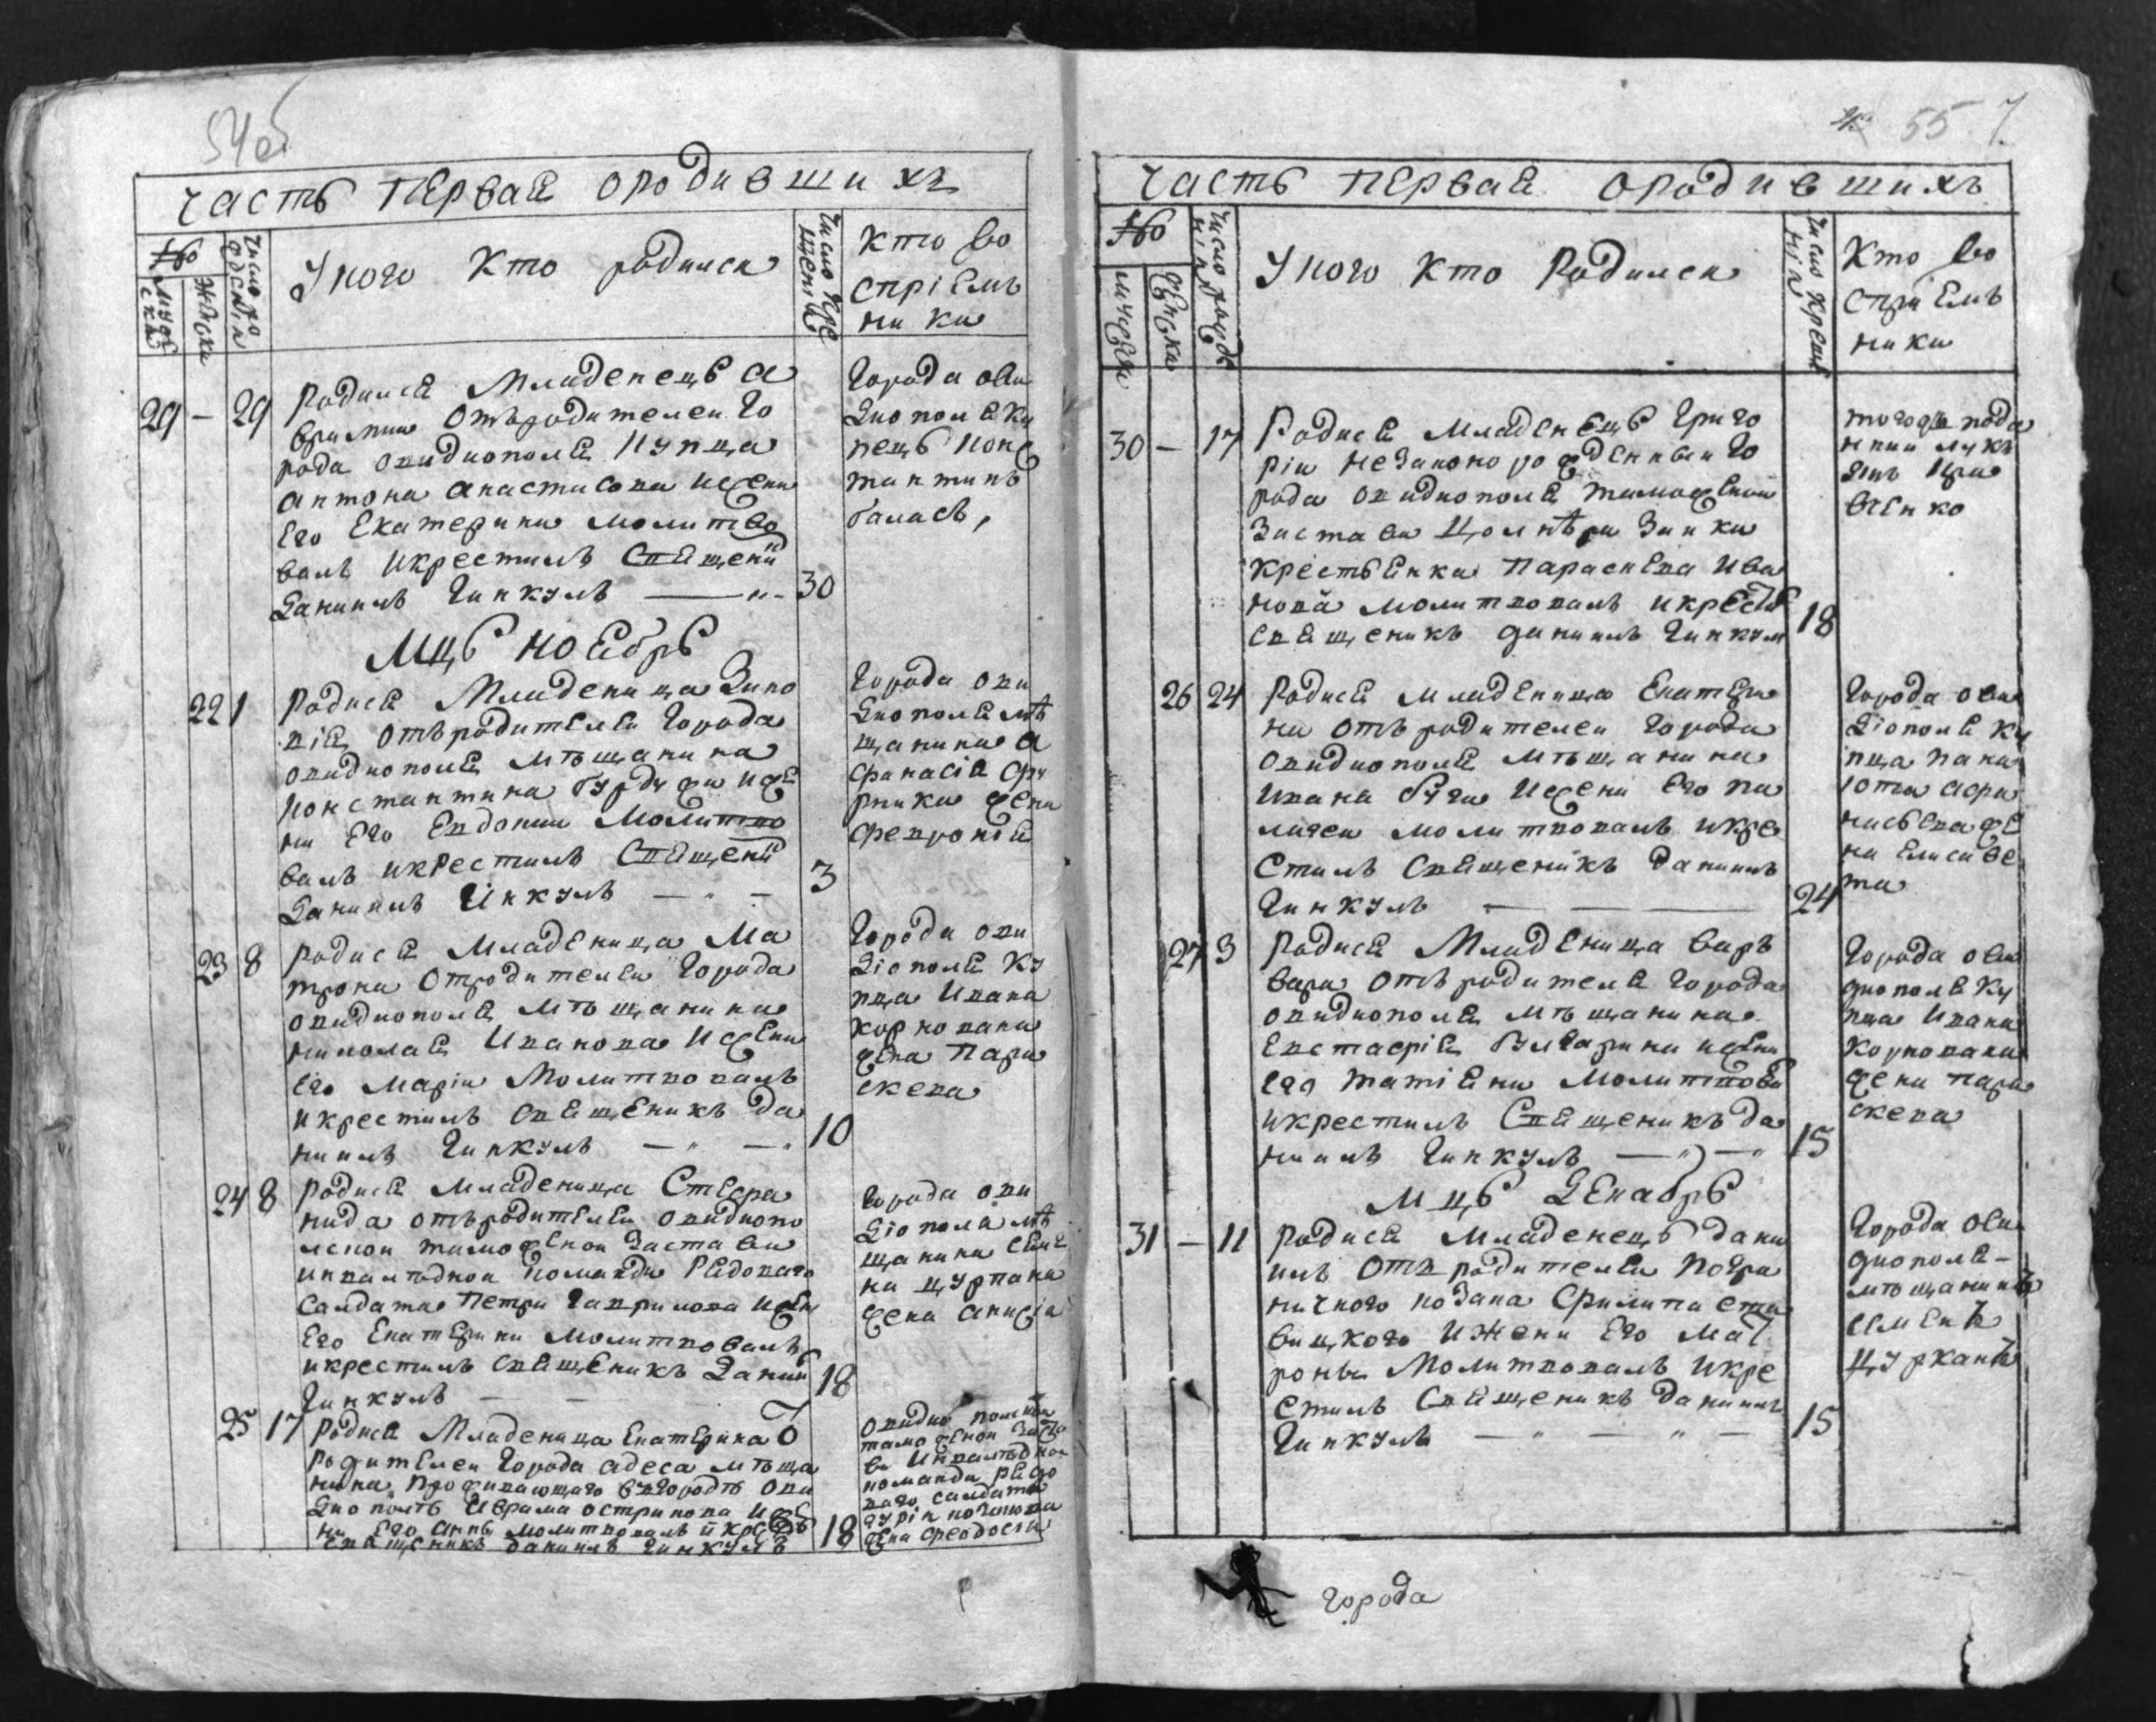 54об
часть первая ородившихъ
№
Число рожденія
Уного кто родился
Число крещенія
кто во
спріемъ
ники
мужеска
женска
29 – 29
Родился Младенецъ а
отъ родителей го
рода овидиополя купца
антона анастасова ижени
Его Екатерини молитво
валъ икрестилъ Священи
Даниилъ Гинкулъ 30
Города ови
диополя ку
пецъ конс
тантинъ
Мцъ ноябрь
22 1
Родися Младеница Зино
вія отъ родителей Города
овидиополя мѣщанина
константина ижe
ни Его Евдокии Молитво
валъ икрестилъ Священи
Даниилъ Гинкулъ 3
Города ови
диополя мѣ
щанина а
фанасія
жена
февронія
23 8
Родися Младеница Ма
трона Отродителей Города
овидиополя мѣщанина
николая Иванова ижени
его Маріи Молитвовалъ
икрестилъ Священикъ Да
ниилъ Гинкулъ 10
Города ови
діополя ку
пца Ивана
корнована
жена Пара
скева
24 8
Родися Младеница Стефа
нида отъ родителей овидиопо
лской таможеной Застави
инвалидной команди Рядоваго
Салдата Петра Гаврилова ижени
Его Екатерини молитвовалъ
икрестилъ Священикъ Дании
Гинкулъ 18
Города ови
діополя мѣ
щанина Симе
на цуркана
жена анисія
25 17
Родися Младеница Екатерина О
Родителей Города адеса мѣща
нина проживающаго вгородѣ ови
диополѣ остринова иже
ни Его анни молитвовалъ икрестъ
священикъ Даниилъ Гинкулъ 18
Овидиополской
таможеной Заста
ви Инвалидной
команди рядо
ваго салдата
жена феодосия
55
часть первая ородившихъ
№
Число рожде
нія
Уного кто Родился
Число Креще
нія
Кто во
спріемъ
ники
мужеска
женска
30 – 17
Родися Младенецъ Григо
рій незаконорожденный го
рода овидиополя таможеной
Застави
крестьянка Параскева Ива
нова молитвовалъ икрести
священикъ даниилъ Гинкул 18
26 24
Родися младеница Екатери
на отъ родителей города
овидиополя мѣщанина
Ивана ижени Его Па
лагеи молитвовалъ икре
Стилъ Священикъ Даниилъ
Гинкулъ 24
Города ови
діополя ку
пца Пана
іота афа
насьева же
на Елисаве
та
27 3
Родися Младеница варъ
вара отъ родителя города
овидиополя мѣщанина
Евстафія Булгарина ижени
его татіяни Молитвова
икрестилъ Священикъ Да
ниилъ Гинкулъ 15
Города ови
диополя ку
пца Ивана
Корнована
жена пара
скева
Мцъ Декабрь
31 – 11
Родися Младенецъ дани
илъ отъ родителей погра
ничного козака Филипа
вицкого ижени Его Мат
роны Молитвовалъ икре
стилъ Священикъ Даниилъ
Гинкулъ 15
Города ови
диополя
мѣщанинъ
семенъ
цурканъ
Города